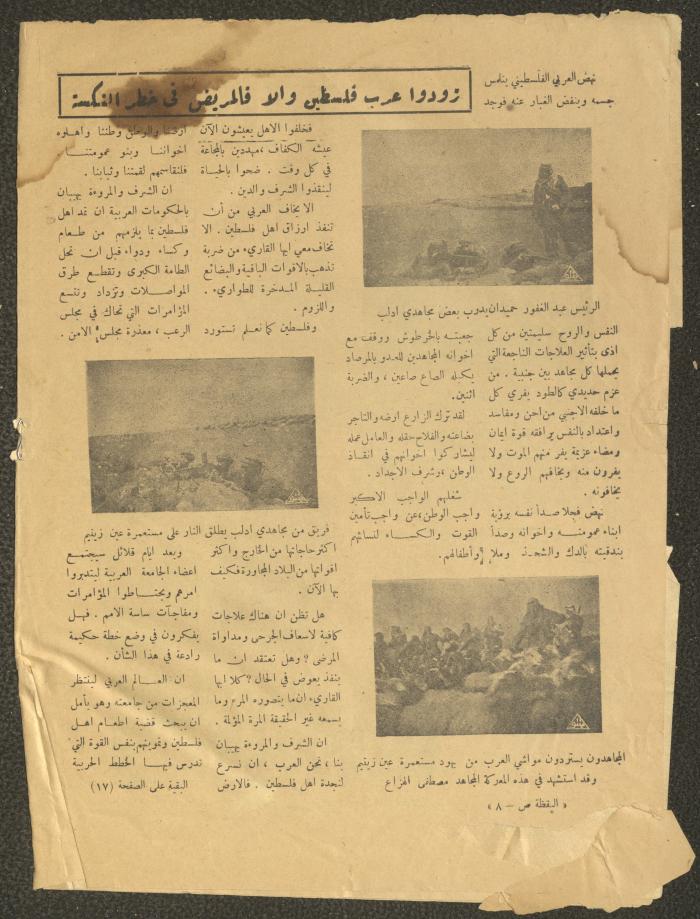 زودوا عرب فلسطين والا فالمريض في خطر النكسة
نهض العربي الفلسطيني يتلمس
جسمه وينفض الغبار عنه فوجد
الرئيس عبد الغفور حميدان يدرب بعض مجاهدي ادلب
النفس والروح سليمتين من كل
اذى بتأثير العلاجات الناجعة التي
يحملها كل مجاهد بين جنبية . من
عزم حديدي كالطود يفري كل
ما خلفه الاجنبي من احن ومفاسد
واعتداد بالنفس يرافقه قوة ايمان
ومضاء عزيمة يفر منهم الموت ولا
يفرون منه ويخافهم الروع ولا
يخافونه .
نهض فجلا صدأ نفسه برؤية
ابناء عمومته واخوانه وصدأ
بندقيته بالدك والشحذ وملا
جعبته بالخرطوش ووقف مع
اخوانه المجاهدين للعدو بالمرصاد
يكيله الصاع صاعين ، والضربة
اثنين .
لقد ترك الزارع ارضه والتاجر
بضاعته والفلاح حقله والعامل عمله
ليشاركوا اخوانهم في انقاذ
الوطن ، وشرف الاجداد .
شغلهم الواجب الاكبر
واجب الوطن ، عن واجب تأمين
القوت والكساء لنسائهم
وأطفالهم .
المجاهدون يستردون مواشي العرب من يهود مستعمرة عين زيتيم
وقد استشهد في هذه المعركة المجاهد مصطفى الهزاع
« اليقظة ص – ٨ »
فخلفوا الاهل يعيشون الآن
عيشه الكفاف ، مهددين بالمجاعة
في كل وقت . ضحوا بالحياة
لينقذوا الشرف والدين .
الا يخاف العربي من أن
تنفذ ارزاق اهل فلسطين . الا
تخاف معي ايها القاريء من ضربة
تذهب بالاقوات الباقية والبضائع
القليلة المدخرة للطواريء .
واللزوم .
وفلسطين كما نعلم تستورد
فريق من مجاهدي ادلب يطلق النار على مستعمرة عين زيتيم
اكثر حاجاتها من الخارج واكثر
اقواتها من البلاد المجاورة فكيف
بها الآن .
هل تظن ان هناك علاجات
كافية لاسعاف الجرحى ومداواة
المرضى ؟ وهل تعتقد ان ما
ينفذ يعوض في الحال ؟ كلا ايها
القاريء ان ما يتصوره المرء وما
يسمعه غير الحقيقة المرة المؤلمة .
ان الشرف والمروءة يهيبان
بنا ، نحن العرب ، ان نسرع
لنجدة اهل فلسطين . فالارض
ارضنا والوطن وطننا واهلوه
اخواننا وبنو عمومتنا .
فلنقاسمهم لقمتنا وثيابنا .
ان الشرف والمروءة يهيبان
بالحكومات العربية ان تمد اهل
فلسطين بما يلزمهم من طعام
وكساء ودواء قبل ان تحل
الطامة الكبرى وتقطع طرق
المواصلات وتزداد وتتسع
المؤامرات التي تحاك في مجلس
الرعب ، معذرة مجلس الامن .
وبعد ايام قلائل سيجتمع
اعضاء الجامعة العربية ليتدبروا
امرهم ويحتاطوا المؤامرات
ومفاجآت ساسة الامم . فهل
يفكرون في وضع خطة حكيمة
رادعة في هذا الشأن .
ان العالم العربي لينتظر
المعجزات من جامعته وهو يأمل
ان يبحث قضية اطعام اهل
فلسطين وتموينهم بنفس القوة التي
تدرس فيها الخطط الحربية
البقية على الصفحة (١٧)